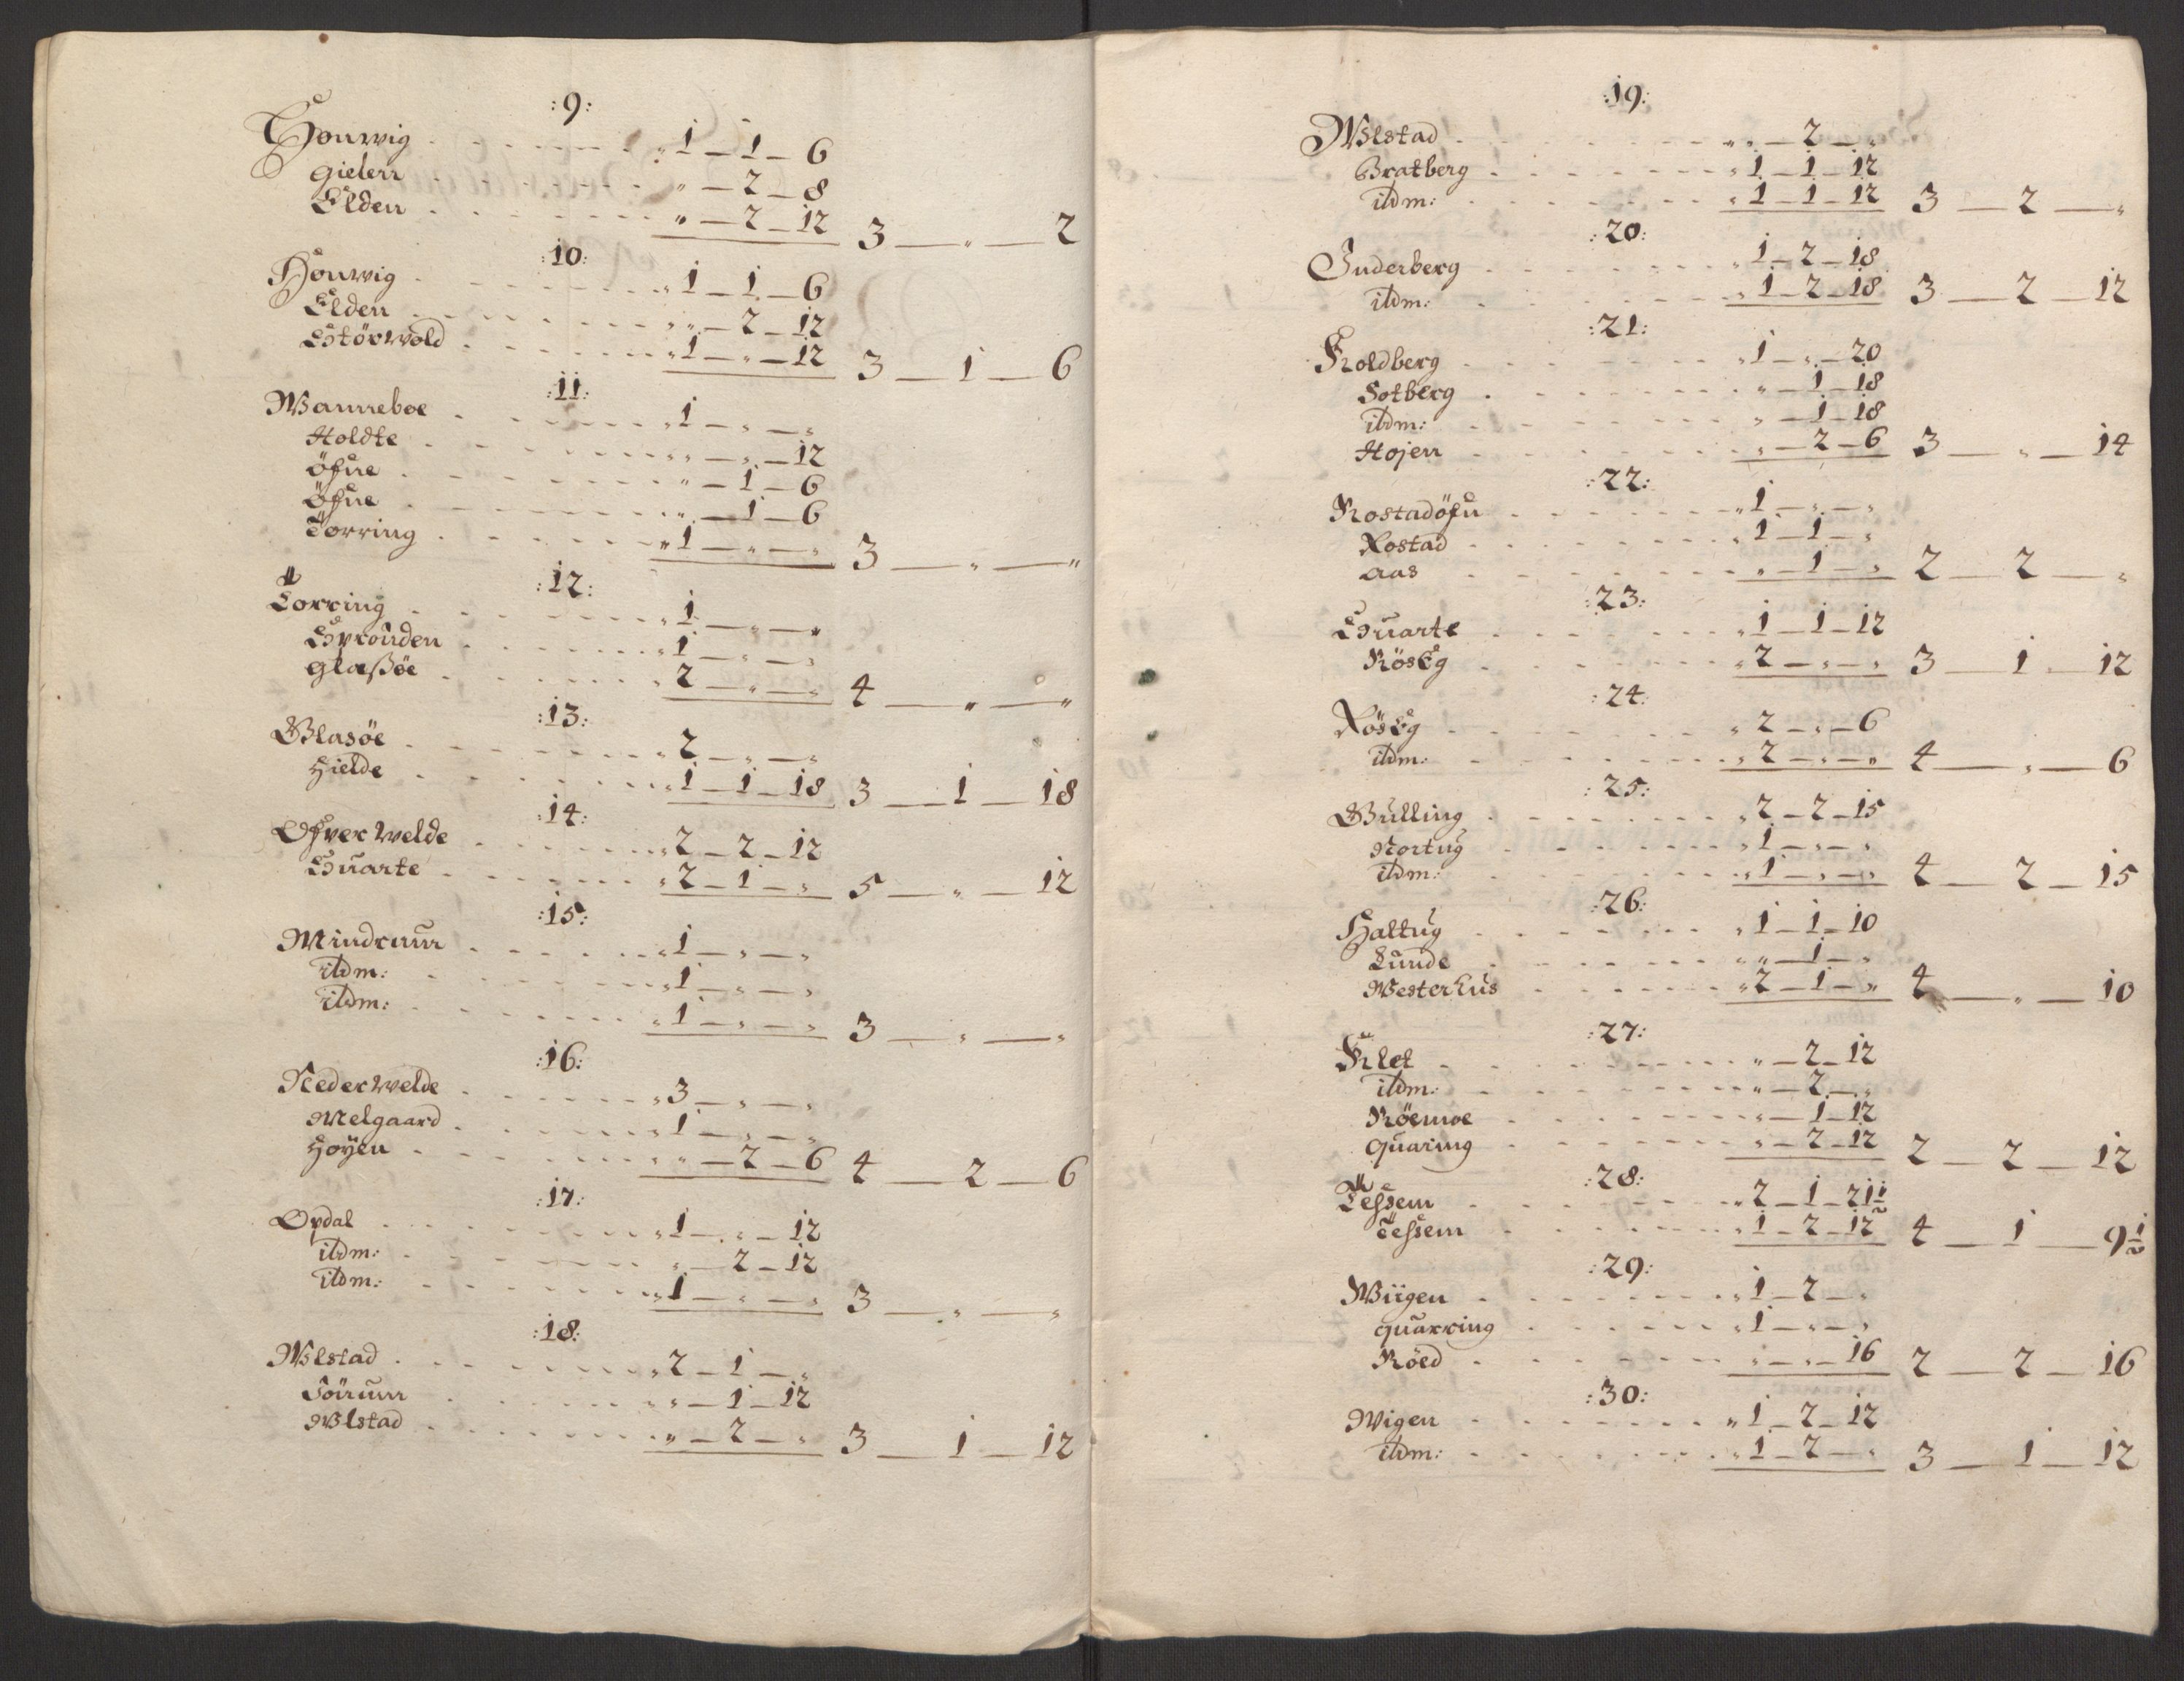 :9:
Honwig . . . . . . . „ 1 – 1 – 6
Gielen . . . . . . . „ – 2 – 8
Elden . . . . . . . „ – 2 – 12 3 — „ — 2
:10:
Honwig . . . . . . . „ 1 – 1 – 6
Elden . . . . . . . „ „ – 2 – 12
Störwold . . . . . . . „ 1 – „ – 12 3 — 1 — 6
:11:
Wanneboe . . . . . . . „ 1 – „ – „
Holdte . . . . . . . „ „ – „ – 12
Öfne . . . . . . . „ – 1 – 6
Öfne . . . . . . . „ – 1 – 6
Torring . . . . . . . „ 1 – „ – „ 3 — „ — „
:12:
Torring . . . . . . . „ 1 – „ – „
Sprouden . . . . . . . „ 1 – „ – „
Glaßöe . . . . . . . „ 2 – „ – „ 4 — „ — „
:13:
Glasöe . . . . . . . „ 2 – „ – „
Hielde . . . . . . . „ 1 – 1 – 18 3 — 1 — 18
:14:
Ofver Welde . . . . . . . „ 2 – 2 – 12
Suarte . . . . . . . „ 2 – 1 – „ 5 — „ — 12
:15:
Mindruun . . . . . . . „ 1 – „ – „
ildm: . . . . . . . „ 1 – „ – „
ildm: . . . . . . . „ 1 – „ – „ 3 — „ — „
:16:
Neder Welde . . . . . . . „ 3 – „ – „
Melgaard . . . . . . . „ 1 – „ – „
Høyen . . . . . . . „ „ – 2 – 6 4 — 2 — 6
:17:
Opdal . . . . . . . „ 1 – „ – 12
ildm: . . . . . . . „ – 2 – 12
ildm: . . . . . . . „ 1 – „ – „ 3 — „ — „
:18:
Wlstad . . . . . . . „ 2 – 1 – „
Sörum . . . . . . . „ „ – 1 – 12
Wlstad . . . . . . . „ – 2 – „ 3 — 1 — 12
:19:
Wlstad . . . . . . . „ „ – 2 – „
Bratberg . . . . . . . „ 1 – 1 – 12
ildm: . . . . . . . „ 1 – 1 – 12 3 — 2 — „
:20:
Inderberg . . . . . . . „ 1 – 2 – 18
ildm: . . . . . . . „ 1 – 2 – 18 3 — 2 — 12
:21:
Koldberg . . . . . . . „ 1 – „ – 20
Sotberg . . . . . . . „ – 1 – 18
ildm: . . . . . . . „ – 1 – 18
Hojen . . . . . . . „ – 2 – 6 3 — „ — 14
:22:
Rostadöfn . . . . . . . „ 1 – „ – „
Rostad . . . . . . . „ 1 – 1 – „
Aas . . . . . . . „ – 1 – „ 2 — 2 — „
:23:
Suarte . . . . . . . „ 1 – 1 – 12
Röseg . . . . . . . „ 2 – „ – „ 3 — 1 — 12
:24:
Röseg . . . . . . . „ 2 – „ – 6
ildm: . . . . . . . „ 2 – „ – „ 4 — „ — 6
:25:
Bulling . . . . . . . „ 2 – 2 – 15
Nortug . . . . . . . „ 1 – „ – „
ildm: . . . . . . . „ 1 – „ – „ 4 — 2 — 15
:26:
Haltug . . . . . . . „ 1 – 1 – 10
Lunde . . . . . . . „ „ – 1 – „
Westerhus . . . . . . . „ 2 – 1 – „ 4 — „ — 10
:27:
Klet . . . . . . . „ – 2 – 12
ildm: . . . . . . . „ – 2 – „
Röemoe . . . . . . . „ – 1 – 12
Quaring . . . . . . . „ – 2 – 12 2 — 2 — 12
:28:
Tessem . . . . . . . „ 2 – 1 – 21½
Tessem . . . . . . . „ 1 – 2 – 12 4 — 1 — 9½
:29:
Wiigen . . . . . . . „ 1 – 2 – „
Quarring . . . . . . . „ 1 – „ – „
Röed . . . . . . . „ – „ – 16 2 — 2 — 16
:30:
Wigen . . . . . . . „ 1 – 2 – 12
ildm: . . . . . . . „ 1 – 2 – „ 3 — 1 — 12